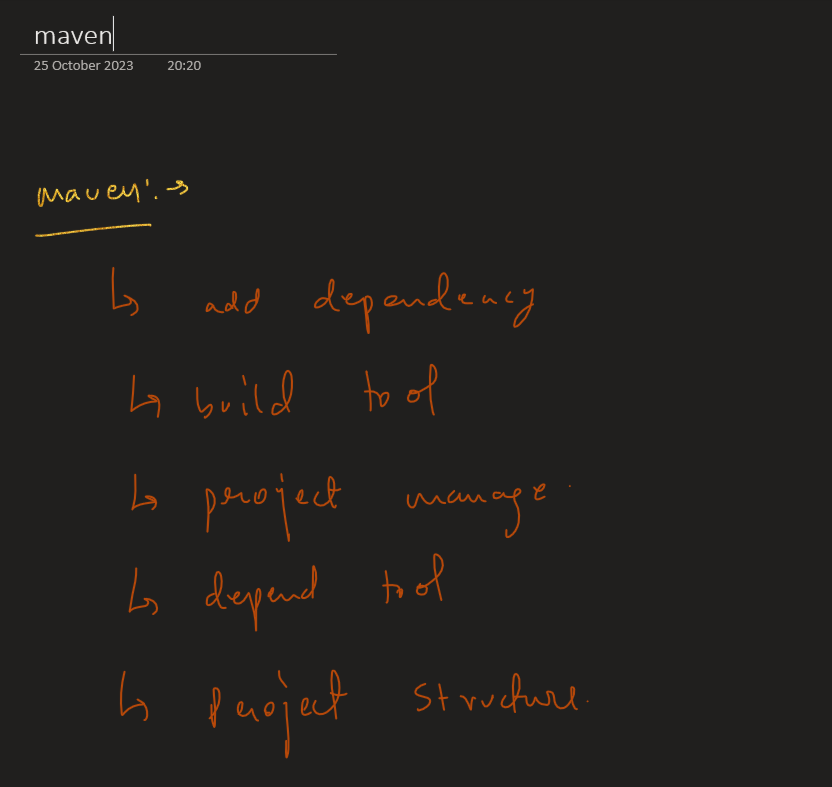 maven
25 October 2023 20:20
maven:→
↳ add dependency
↳ build tool
↳ project manage.
↳ depend tool
↳ project structure.